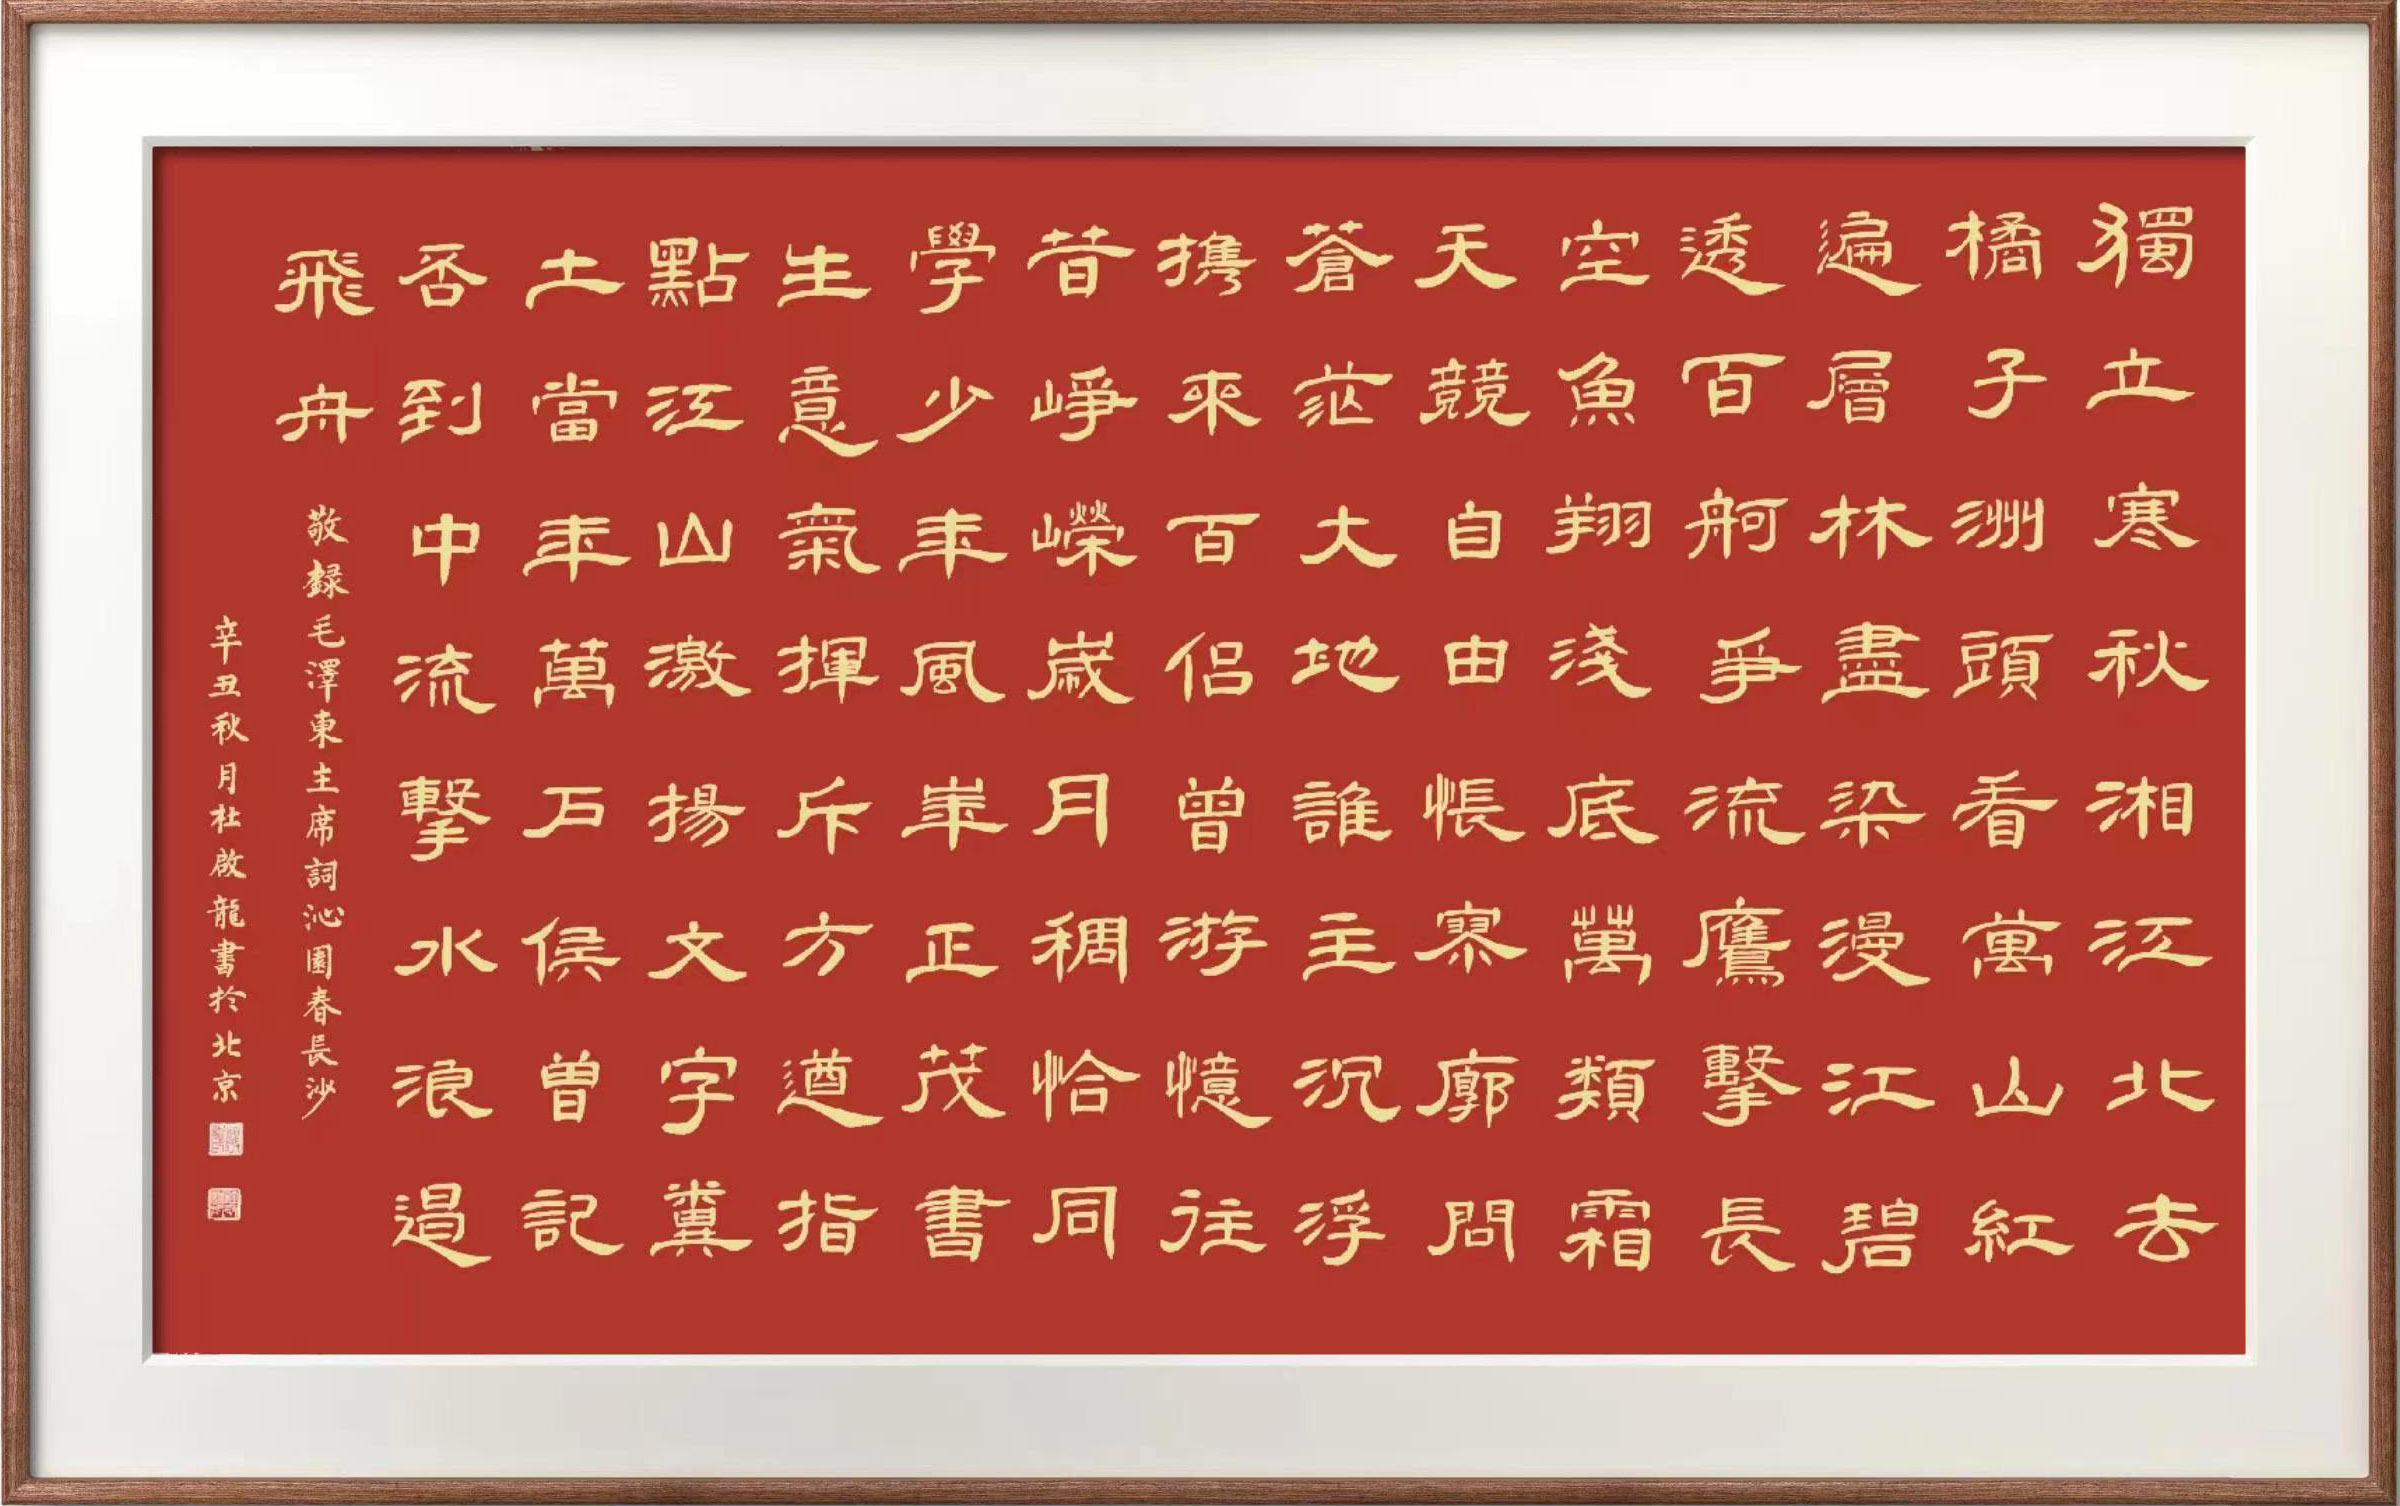 獨立寒秋湘江北去
橘子洲頭看萬山紅
遍層林盡染漫江碧
透百舸爭流鷹擊長
空魚翔淺底萬類霜
天競自由悵寥廓問
蒼茫大地誰主沉浮
携來百侶曾游憶往
昔崢嶸歲月稠恰同
學少年風華正茂書
生意氣揮斥方遒指
點江山激揚文字糞
土當年萬戶侯曾記
否到中流擊水浪遏
飛舟
敬録毛澤東主席詞沁園春長沙
辛丑秋月杜啟龍書於北京